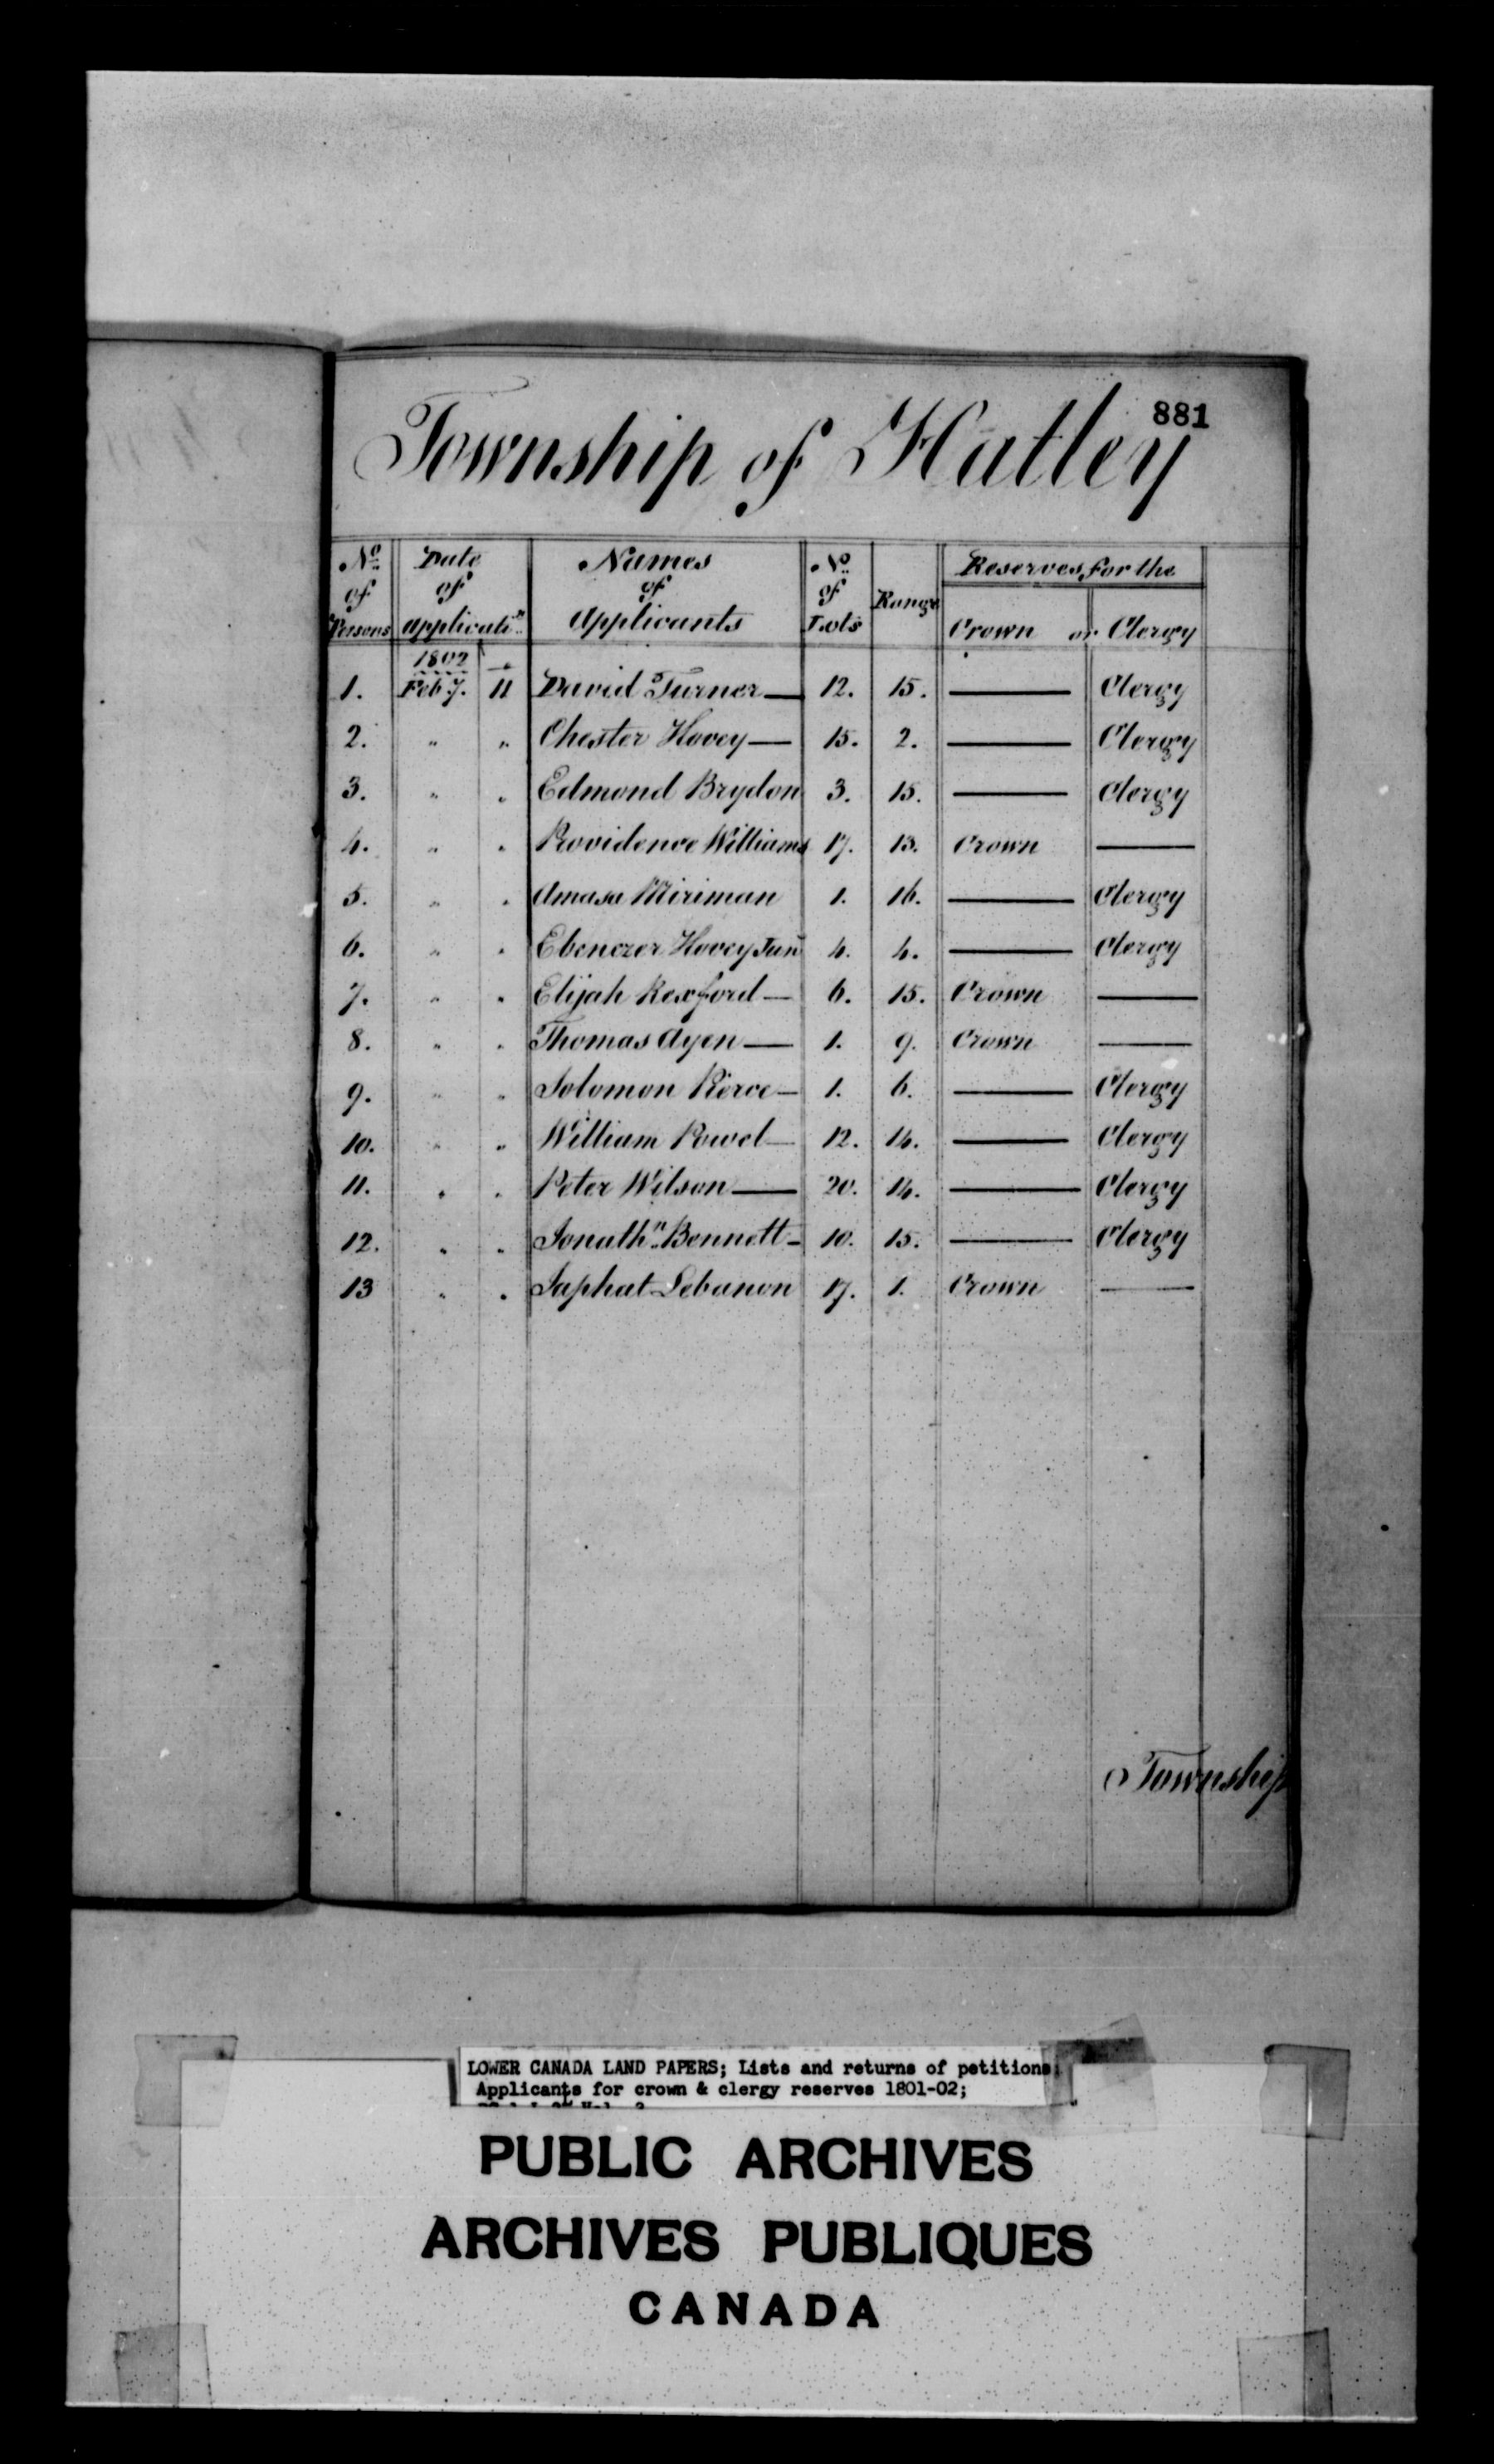 881
Township of Hatley
No. of Persons | Date of Applicatn. | Names of Applicants | No. of Lots | Range | Reserves for the Crown or Clergy
1802
1. Feby. 11 David Turner — 12. 15. — Clergy
2. " " Chester Hovey — 15. 2. — Clergy
3. " " Edmond Brydon 3. 15. — Clergy
4. " " Providence Williams 17. 13. Crown —
5. " " Amasa Miriman 1. 16. — Clergy
6. " " Ebenezer Hovey Junr 4. 4. — Clergy
7. " " Elijah Rexford — 6. 15. Crown —
8. " " Thomas Ayen — 1. 9. Crown —
9. " " Solomon Pierce — 1. 6. — Clergy
10. " " William Powel — 12. 14. — Clergy
11. " " Peter Wilson — 20. 14. — Clergy
12. " " Jonathn. Bennett — 10. 15. — Clergy
13 " " Japhat Lebanon 17. 1. Crown —
Township
LOWER CANADA LAND PAPERS; Lists and returns of petitions;
Applicants for crown & clergy reserves 1801-02;
PUBLIC ARCHIVES
ARCHIVES PUBLIQUES
CANADA